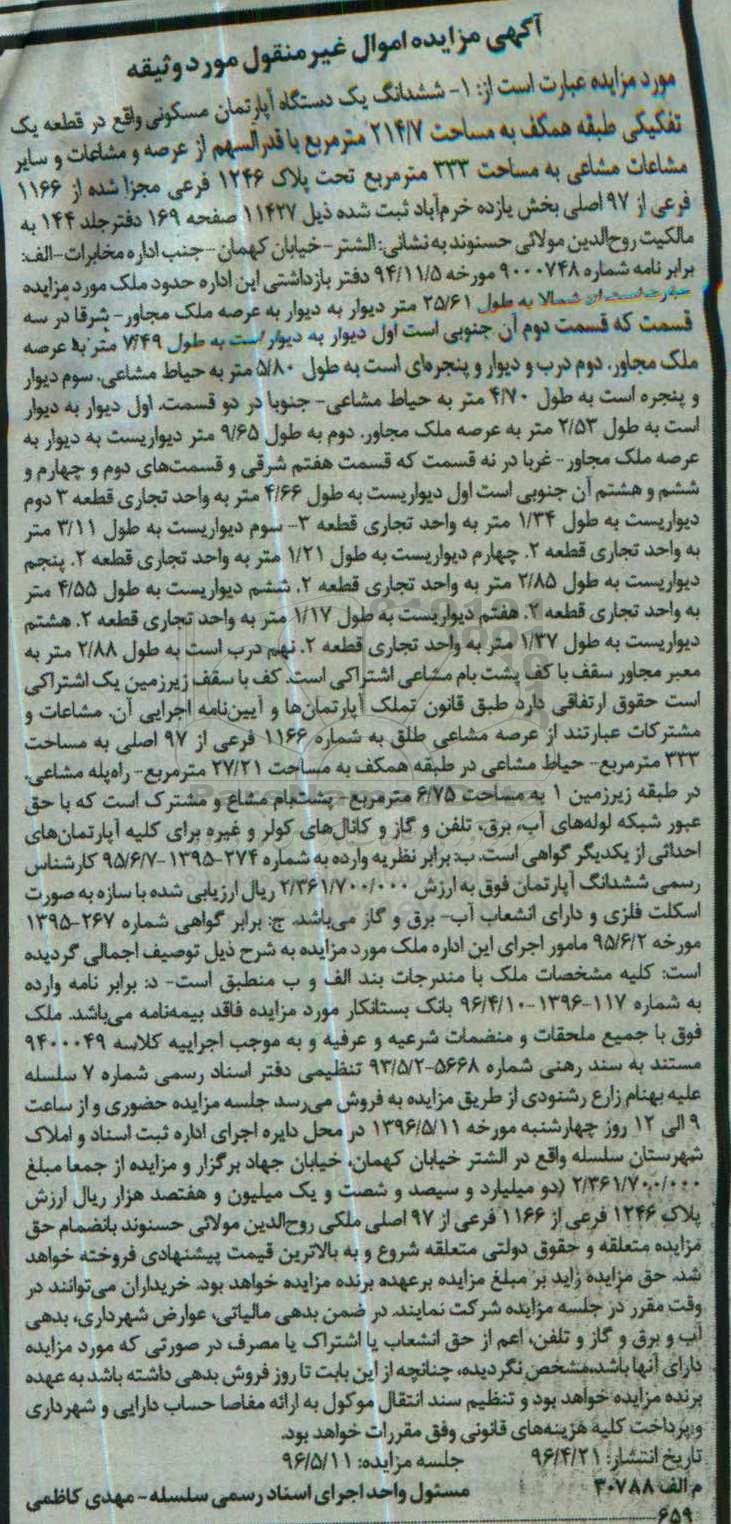 آگهی مزایده اموال غیر منقول مورد وثیقه
مورد مزایده عبارت است از: ۱- ششدانگ یک دستگاه آپارتمان مسکونی واقع در قطعه یک
تفکیکی طبقه همکف به مساحت ۲۱۴/۷ مترمربع با قدرالسهم از عرصه و مشاعات و سایر
مشاعات مشاعی به مساحت ۳۳۳ مترمربع تحت پلاک ۱۲۴۶ فرعی مجزا شده از ۱۱۶۶
فرعی از ۹۷ اصلی بخش یازده خرم‌آباد ثبت شده ذیل ۱۱۴۲۷ صفحه ۱۶۹ دفتر جلد ۱۴۴ به
مالکیت روح‌الدین مولائی حسنوند به نشانی: الشتر - خیابان کهمان - جنب اداره مخابرات - الف:
برابر نامه شماره ۹۰۰۰۷۴۸ مورخه ۹۴/۱۱/۵ دفتر بازداشتی این اداره حدود ملک مورد مزایده
عبارت است از: شمالا به طول ۲۵/۶۱ متر دیوار به دیوار به عرصه ملک مجاور - شرقا در سه
قسمت که قسمت دوم آن جنوبی است اول دیوار به دیوار است به طول ۷/۴۹ متر به عرصه
ملک مجاور. دوم درب و دیوار و پنجره‌ای است به طول ۵/۸۰ متر به حیاط مشاعی. سوم دیوار
و پنجره است به طول ۴/۷۰ متر به حیاط مشاعی - جنوبا در دو قسمت. اول دیوار به دیوار
است به طول ۲/۵۳ متر به عرصه ملک مجاور. دوم به طول ۹/۶۵ متر دیواریست به دیوار به
عرصه ملک مجاور - غربا در نه قسمت که قسمت هفتم شرقی و قسمت‌های دوم و چهارم و
ششم و هشتم آن جنوبی است اول دیواریست به طول ۴/۶۶ متر به واحد تجاری قطعه ۳ دوم
دیواریست به طول ۱/۳۴ متر به واحد تجاری قطعه ۳- سوم دیواریست به طول ۳/۱۱ متر
به واحد تجاری قطعه ۲. چهارم دیواریست به طول ۱/۲۱ متر به واحد تجاری قطعه ۲. پنجم
دیواریست به طول ۲/۸۵ متر به واحد تجاری قطعه ۲. ششم دیواریست به طول ۴/۵۵ متر
به واحد تجاری قطعه ۲. هفتم دیواریست به طول ۱/۱۷ متر به واحد تجاری قطعه ۲. هشتم
دیواریست به طول ۱/۳۷ متر به واحد تجاری قطعه ۲. نهم درب است به طول ۲/۸۸ متر به
معبر مجاور سقف با کف پشت بام مشاعی اشتراکی است. کف با سقف زیرزمین یک اشتراکی
است حقوق ارتفاقی دارد طبق قانون تملک آپارتمان‌ها و آیین‌نامه اجرایی آن. مشاعات و
مشترکات عبارتند از عرصه مشاعی طلق به شماره ۱۱۶۶ فرعی از ۹۷ اصلی به مساحت
۳۳۳ مترمربع - حیاط مشاعی در طبقه همکف به مساحت ۲۷/۲۱ مترمربع - راه‌پله مشاعی.
در طبقه زیرزمین ۱ به مساحت ۶/۷۵ مترمربع - پشت‌بام مشاع و مشترک است که با حق
عبور شبکه لوله‌های آب، برق، تلفن و گاز و کانال‌های کولر و غیره برای کلیه آپارتمان‌های
احداثی از یکدیگر گواهی است. ب: برابر نظریه وارده به شماره ۲۷۴-۱۳۹۵-۹۵/۶/۷ کارشناس
رسمی ششدانگ آپارتمان فوق به ارزش ۲/۳۶۱/۷۰۰/۰۰۰ ریال ارزیابی شده با سازه به صورت
اسکلت فلزی و دارای انشعاب آب - برق و گاز می‌باشد. ج: برابر گواهی شماره ۲۶۷-۱۳۹۵
مورخه ۹۵/۶/۲ مامور اجرای این اداره ملک مورد مزایده به شرح ذیل توصیف اجمالی گردیده
است: کلیه مشخصات ملک با مندرجات بند الف و ب منطبق است - د: برابر نامه وارده
به شماره ۱۱۷-۱۳۹۶-۹۶/۴/۱۰ بانک بستانکار مورد مزایده فاقد بیمه‌نامه می‌باشد. ملک
فوق با جمیع ملحقات و منضمات شرعیه و عرفیه و به موجب اجراییه کلاسه ۹۴۰۰۰۴۹
مستند به سند رهنی شماره ۵۶۶۸-۹۳/۵/۲ تنظیمی دفتر اسناد رسمی شماره ۷ سلسله
علیه بهنام زارع رشنودی از طریق مزایده به فروش می‌رسد جلسه مزایده حضوری و از ساعت
۹ الی ۱۲ روز چهارشنبه مورخه ۱۳۹۶/۵/۱۱ در محل دایره اجرای اداره ثبت اسناد و املاک
شهرستان سلسله واقع در الشتر خیابان کهمان، خیابان جهاد برگزار و مزایده از جمعا مبلغ
۲/۳۶۱/۷۰۰/۰۰۰ (دو میلیارد و سیصد و شصت و یک میلیون و هفتصد هزار ریال ارزش
پلاک ۱۲۴۶ فرعی از ۱۱۶۶ فرعی از ۹۷ اصلی ملکی روح‌الدین مولائی حسنوند بانضمام حق
مزایده متعلقه و حقوق دولتی متعلقه شروع و به بالاترین قیمت پیشنهادی فروخته خواهد
شد. حق مزایده زاید بر مبلغ مزایده برعهده برنده مزایده خواهد بود. خریداران می‌توانند در
وقت مقرر در جلسه مزایده شرکت نمایند. در ضمن بدهی مالیاتی، عوارض شهرداری، بدهی
آب و برق و گاز و تلفن، اعم از حق انشعاب یا اشتراک یا مصرف در صورتی که مورد مزایده
دارای آنها باشد، مشخص نگردیده، چنانچه از این بابت تا روز فروش بدهی داشته باشد به عهده
برنده مزایده خواهد بود و تنظیم سند انتقال موکول به ارائه مفاصا حساب دارایی و شهرداری
و پرداخت کلیه هزینه‌های قانونی وفق مقررات خواهد بود.
تاریخ انتشار: ۹۶/۴/۲۱ جلسه مزایده: ۹۶/۵/۱۱
م الف ۳۰۷۸۸ مسئول واحد اجرای اسناد رسمی سلسله - مهدی کاظمی
۶۵۹